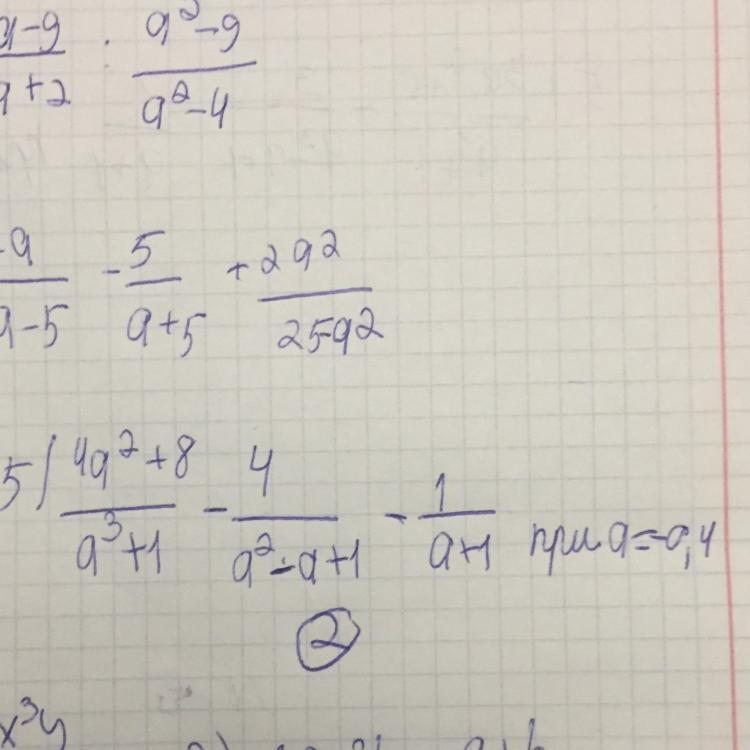 a-9/a+2 : a²-9/a²-4
-a/a-5 - 5/a+5 + 2a²/25-a²
5) 4a²+8/a³+1 - 4/a²-a+1 - 1/a+1 при a=-0,4
2
x³y